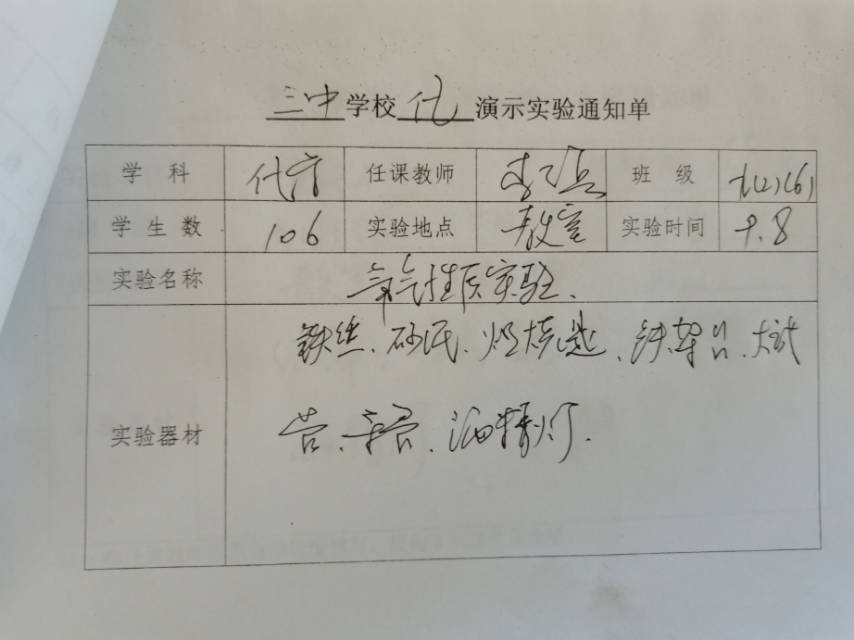 三中学校化演示实验通知单
学科 化学 任课教师 班级 (2)(6)
学生数 106 实验地点 教室 实验时间 9.8
实验名称 氧气性质实验.
铁丝、砂纸、燃烧匙、铁架台、大试
实验器材 管、导管、酒精灯.